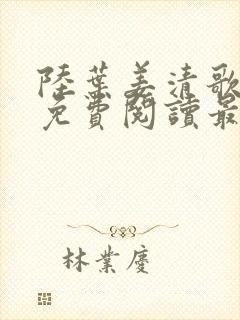 陸葉姜清歌
免費閱讀最
林業慶